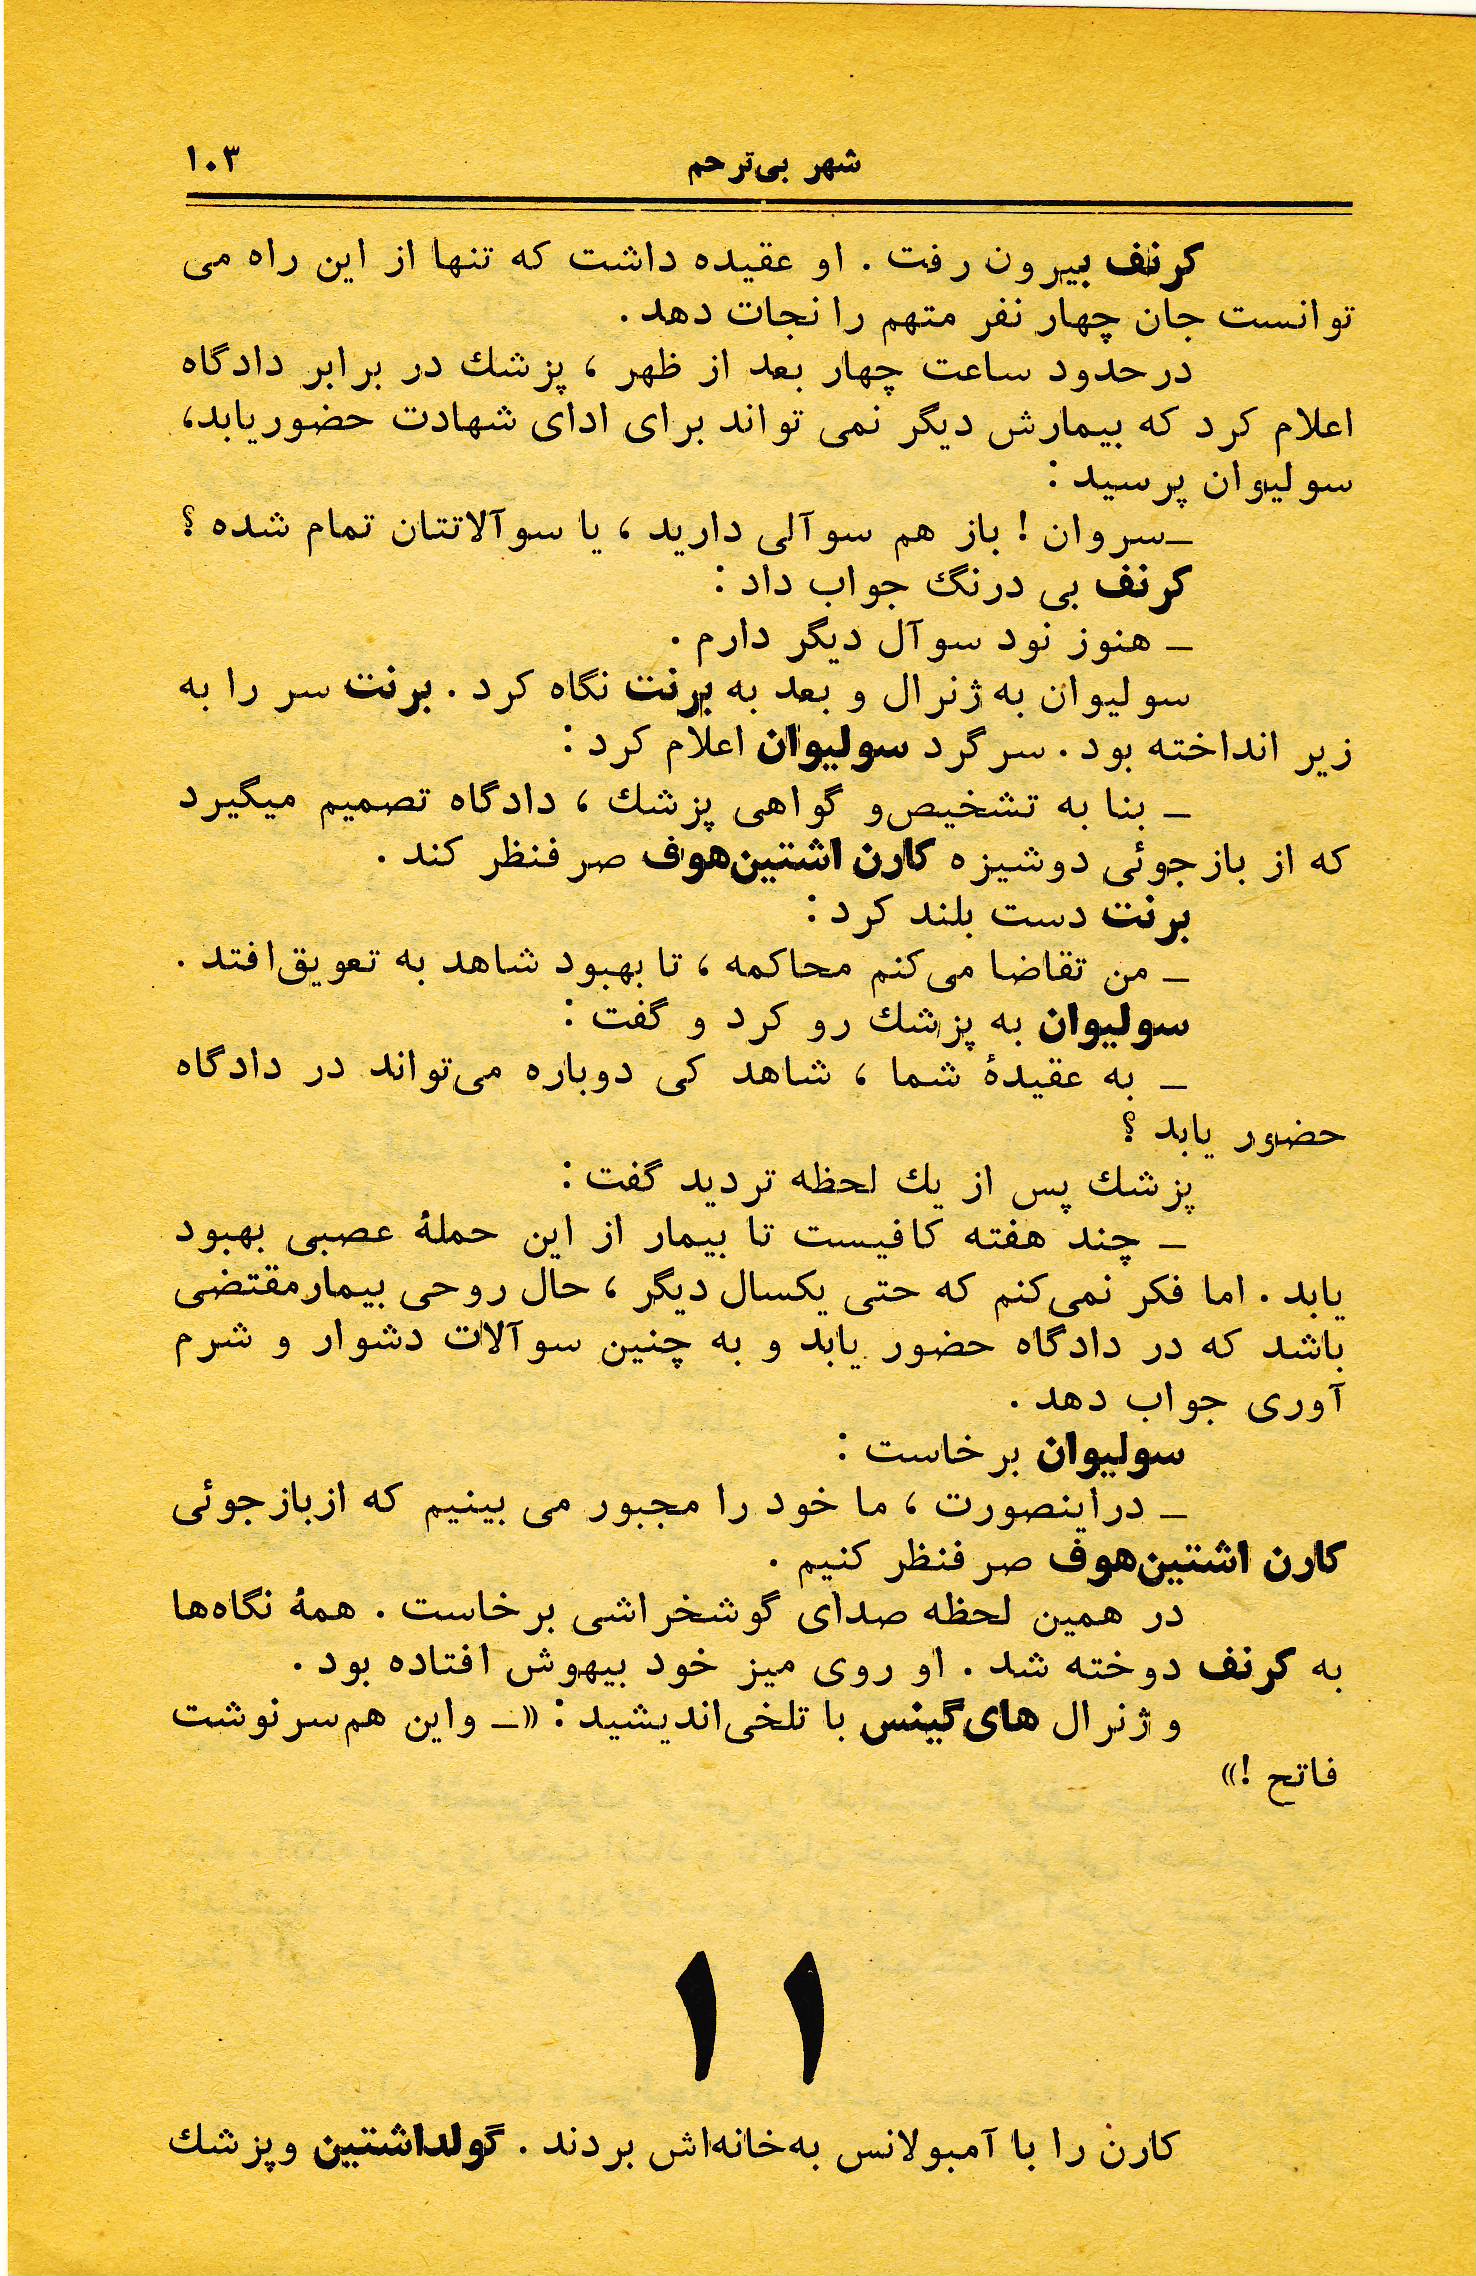 شهر بی‌ترحم ۱۰۳
کرنف بیرون رفت . او عقیده داشت که تنها از این راه می
توانست جان چهار نفر متهم را نجات دهد .
درحدود ساعت چهار بعد از ظهر ، پزشك در برابر دادگاه
اعلام کرد که بیمارش دیگر نمی تواند برای ادای شهادت حضوریابد،
سولیوان پرسید :
ـ سروان ! باز هم سوآلی دارید ، یا سوآلاتتان تمام شده ؟
کرنف بی درنگ جواب داد :
ـ هنوز نود سوآل دیگر دارم .
سولیوان به ژنرال و بعد به برنت نگاه کرد . برنت سر را به
زیر انداخته بود . سرگرد سولیوان اعلام کرد :
ـ بنا به تشخیص‌و گواهی پزشك ، دادگاه تصمیم میگیرد
که از بازجوئی دوشیزه کارن اشتین‌هوف صرفنظر کند .
برنت دست بلند کرد :
ـ من تقاضا می‌کنم محاکمه ، تا بهبود شاهد به تعویق‌افتد .
سولیوان به پزشك رو کرد و گفت :
ـ به عقیدهٔ شما ، شاهد کی دوباره می‌تواند در دادگاه
حضور یابد ؟
پزشك پس از یك لحظه تردید گفت :
ـ چند هفته کافیست تا بیمار از این حملهٔ عصبی بهبود
یابد . اما فکر نمی‌کنم که حتی یکسال دیگر ، حال روحی بیمارمقتضی
باشد که در دادگاه حضور یابد و به چنین سوآلات دشوار و شرم
آوری جواب دهد .
سولیوان برخاست :
ـ دراینصورت ، ما خود را مجبور می بینیم که ازبازجوئی
کارن اشتین‌هوف صرفنظر کنیم .
در همین لحظه صدای گوشخراشی برخاست . همهٔ نگاه‌ها
به کرنف دوخته شد . او روی میز خود بیهوش افتاده بود .
و ژنرال های‌گینس با تلخی‌اندیشید : «ـ واین هم‌سرنوشت
فاتح !»
۱۱
کارن را با آمبولانس به‌خانه‌اش بردند . گولداشتین وپزشك